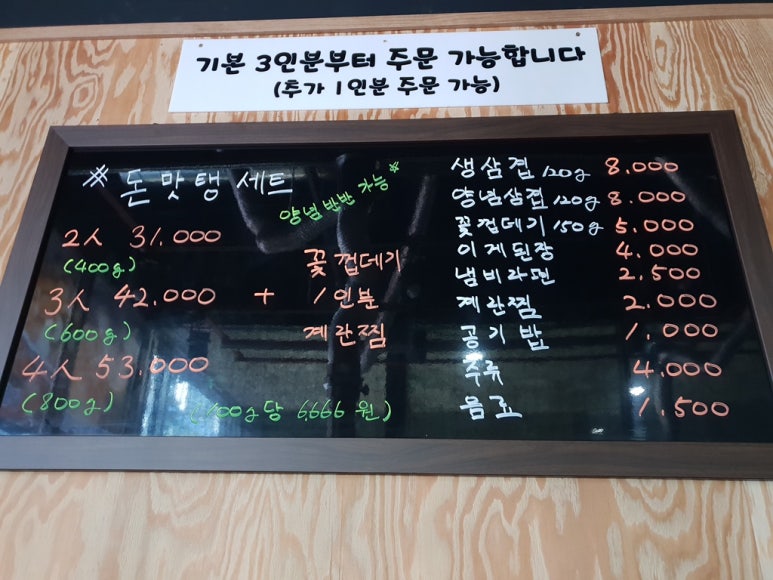 기본 3인분부터 주문 가능합니다
(추가 1인분 주문 가능)
※ 돈맛탱 세트
양념반반 가능*
2人 31.000
(400g)
3人 42.000 +
(600g)
4人 53.000
(800g)
(100g당 6,666원)
꽃껍데기
1인분
계란찜
생삼겹 120g 8.000
양념삼겹 120g 8.000
꽃껍데기 150g 5.000
이게된장 4.000
냄비라면 2.500
계란찜 2.000
공기밥 1.000
주류 4.000
음료 1.500